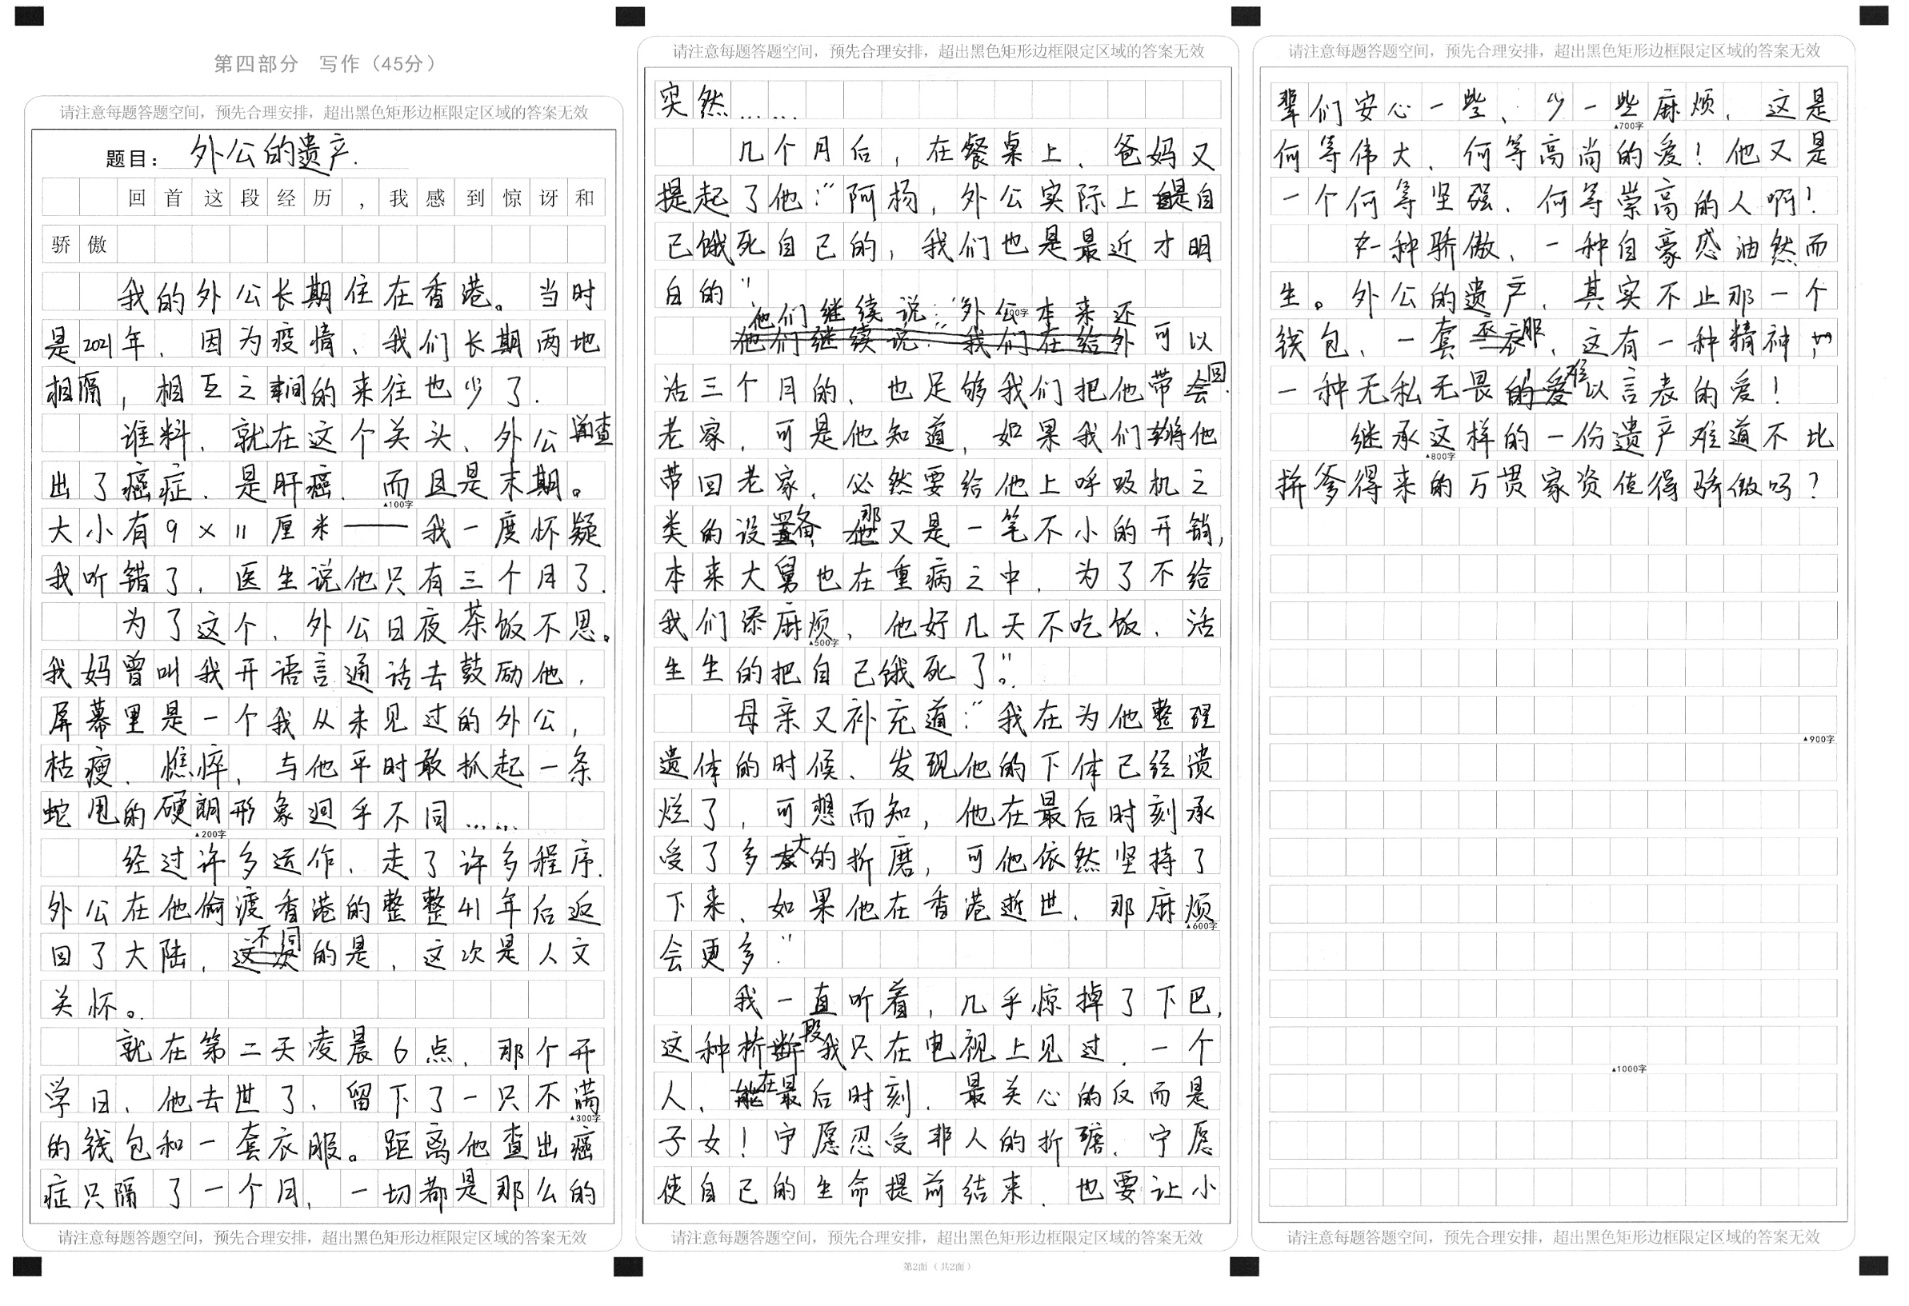 第四部分 写作（45分）
请注意每题答题空间，预先合理安排，超出黑色矩形边框限定区域的答案无效
题目：外公的遗产.
回首这段经历，我感到惊讶和
骄傲
我的外公长期住在香港。当时
是2021年、因为疫情、我们长期两地
相隔，相互之间的来往也少了.
谁料、就在这个关头、外公查
出了癌症、是肝癌、而且是末期。
▲100字
大小有9×11厘米——我一度怀疑
我听错了，医生说他只有三个月了.
为了这个、外公日夜茶饭不思。
我妈曾叫我开语言通话去鼓励他，
屏幕里是一个我从未见过的外公，
枯瘦、憔悴，与他平时敢抓起一条
蛇甩的硬朗形象迥乎不同……
▲200字
经过许多运作，走了许多程序.
外公在他偷渡香港的整整41年后返
回了大陆，不同的是，这次是人文
关怀。
就在第二天凌晨6点、那个开
学日、他去世了、留下了一只不满
▲300字
的钱包和一套衣服。距离他查出癌
症只隔了一个月，一切都是那么的
请注意每题答题空间，预先合理安排，超出黑色矩形边框限定区域的答案无效
请注意每题答题空间，预先合理安排，超出黑色矩形边框限定区域的答案无效
突然……
几个月后，在餐桌上、爸妈又
提起了他：“阿杨，外公实际上是自
己饿死自己的，我们也是最近才明
白的”
他们继续说：“外公本来还
他们继续说：“我们在给外可以
活三个月的，也足够我们把他带回.
老家，可是他知道，如果我们将他
带回老家、必然要给他上呼吸机之
类的设备 那又是一笔不小的开销，
本来大舅也在重病之中、为了不给
我们添麻烦、他好几天不吃饭、活
▲500字
生生的把自己饿死了。”
母亲又补充道：“我在为他整理
遗体的时候、发现他的下体已经溃
烂了，可想而知，他在最后时刻承
受了多大的折磨，可他依然坚持了
下来、如果他在香港逝世、那麻烦
▲600字
会更多”
我一直听着，几乎惊掉了下巴，
这种桥段我只在电视上见过、一个
人、在最后时刻、最关心的反而是
子女！宁愿忍受非人的折磨、宁愿
使自己的生命提前结束、也要让小
请注意每题答题空间，预先合理安排，超出黑色矩形边框限定区域的答案无效
第2面（共2面）
请注意每题答题空间，预先合理安排，超出黑色矩形边框限定区域的答案无效
辈们安心一些、少一些麻烦、这是
▲700字
何等伟大、何等高尚的爱！他又是
一个何等坚强、何等崇高的人啊！
一种骄傲、一种自豪感油然而
生。外公的遗产、其实不止那一个
钱包、一套衣服，还有一种精神，
一种无私无畏难以言表的爱！
继承这样的一份遗产难道不比
▲800字
拼爹得来的万贯家资值得骄傲吗？
▲900字
▲1000字
请注意每题答题空间，预先合理安排，超出黑色矩形边框限定区域的答案无效